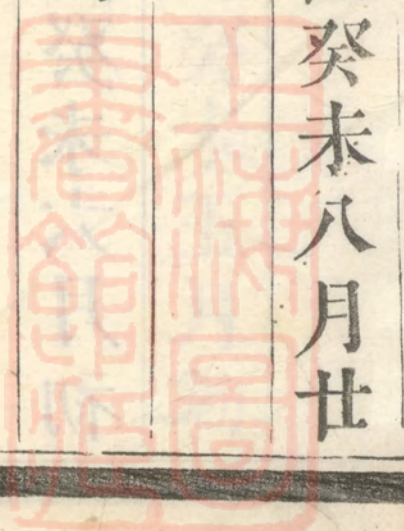 癸未八月廿
上海圖
書館藏